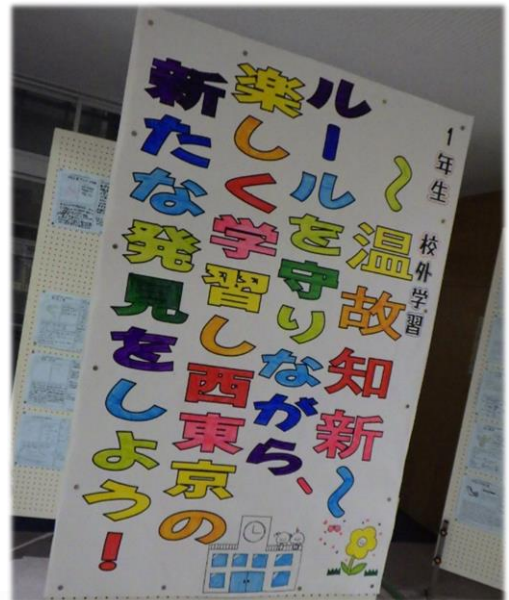 1年生 校外学習
～温故知新～
ルールを守りながら、
楽しく学習し西東京の
新たな発見をしよう！